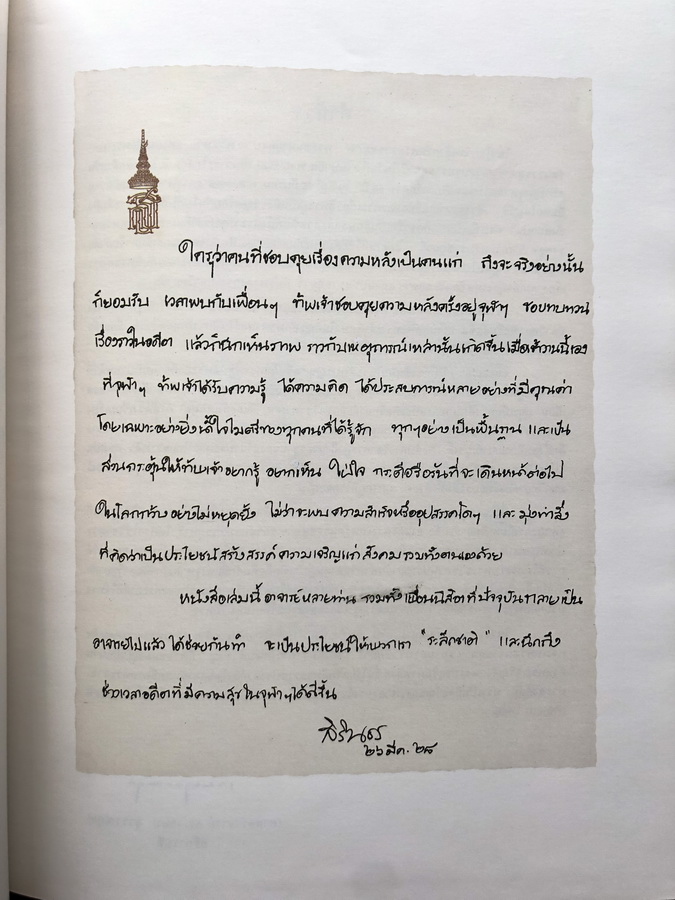 ใครๆว่าคนที่ชอบคุยเรื่องความหลังเป็นคนแก่ ถึงจะจริงอย่างนั้น
ก็ยอมรับ เวลาพบกับเพื่อนๆ ข้าพเจ้าชอบคุยความหลังครั้งอยู่จุฬาฯ ชอบทบทวน
เรื่องราวในอดีต แล้วก็นึกเห็นภาพ ราวกับเหตุการณ์เหล่านั้นเกิดขึ้นเมื่อเช้าวานนี้เอง
ที่จุฬาฯ ข้าพเจ้าได้รับความรู้ ได้ความคิด ได้ประสบการณ์หลายอย่างที่มีคุณค่า
โดยเฉพาะอย่างยิ่งได้น้ำใจไมตรีของทุกคนที่ได้รู้จัก ทุกๆอย่างเป็นพื้นฐาน และเป็น
ส่วนกระตุ้นให้ข้าพเจ้าอยากรู้ อยากเห็น ใฝ่ใจ กระตือรือร้นที่จะเดินหน้าต่อไป
ในโลกกว้างอย่างไม่หยุดยั้ง ไม่ว่าจะพบความสำเร็จหรืออุปสรรคใดๆ และมุ่งทำสิ่ง
ที่คิดว่าเป็นประโยชน์สร้างสรรค์ความเจริญแก่สังคมรวมทั้งตนเองด้วย
หนังสือเล่มนี้ อาจารย์หลายท่าน รวมทั้งเพื่อนนิสิตที่ปัจจุบันกลายเป็น
อาจารย์ไปแล้ว ได้ช่วยกันทำ จะเป็นประโยชน์ให้พวกเรา "ระลึกชาติ" และนึกถึง
ช่วงเวลาอดีตที่มีความสุขในจุฬาฯได้ดีขึ้น
สิรินธร
๒๖ มีค. ๒๘